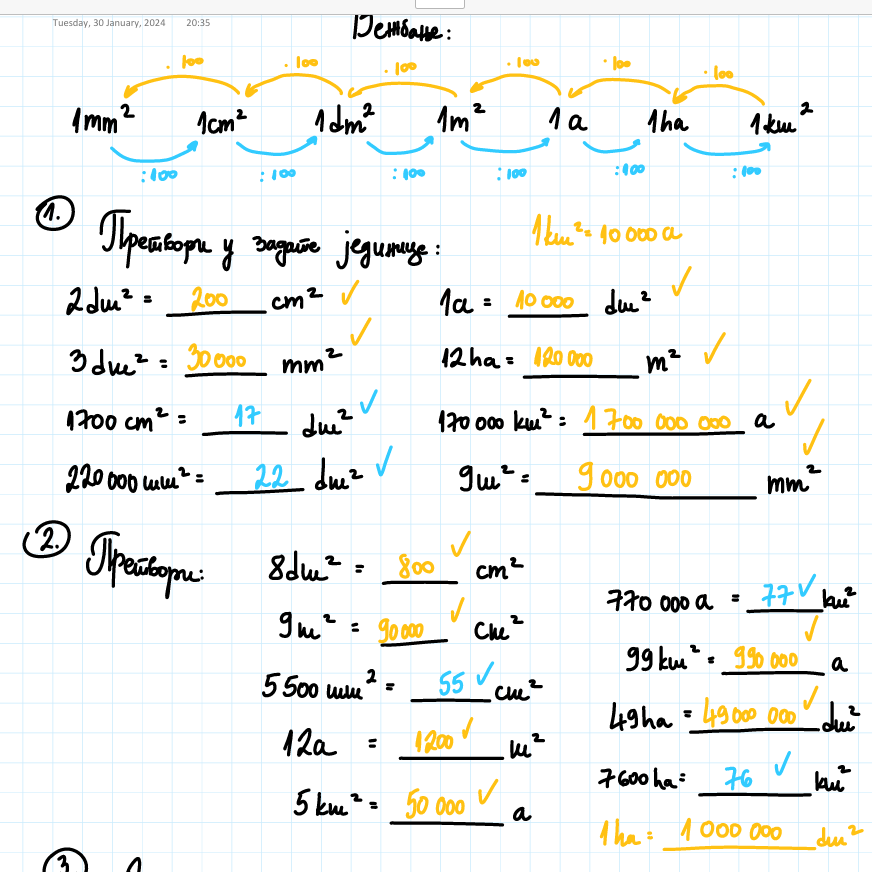 Tuesday, 30 January, 2024 20:35
Вежбање:
· 100 · 100 · 100 · 100 · 100 · 100
1mm² 1cm² 1dm² 1m² 1a 1ha 1km²
:100 :100 :100 :100 :100 :100
1.
Претвори у задате јединице:
1km² = 10 000 a
2dm² = 200 cm² ✓
1a = 10 000 dm² ✓
3dm² = 30 000 mm² ✓
12ha = 120 000 m² ✓
1700 cm² = 17 dm² ✓
170 000 km² = 1 700 000 000 a ✓
220 000 mm² = 22 dm² ✓
9m² = 9 000 000 mm² ✓
2.
Претвори:
8dm² = 800 ✓ cm²
9m² = 90 000 ✓ cm²
5 500 mm² = 55 ✓ cm²
12a = 1200 ✓ m²
5 km² = 50 000 ✓ a
770 000 a = 77 ✓ km²
99 km² = 990 000 ✓ a
49ha = 49 000 000 ✓ dm²
7600 ha = 76 ✓ km²
1ha = 1 000 000 dm²
3.